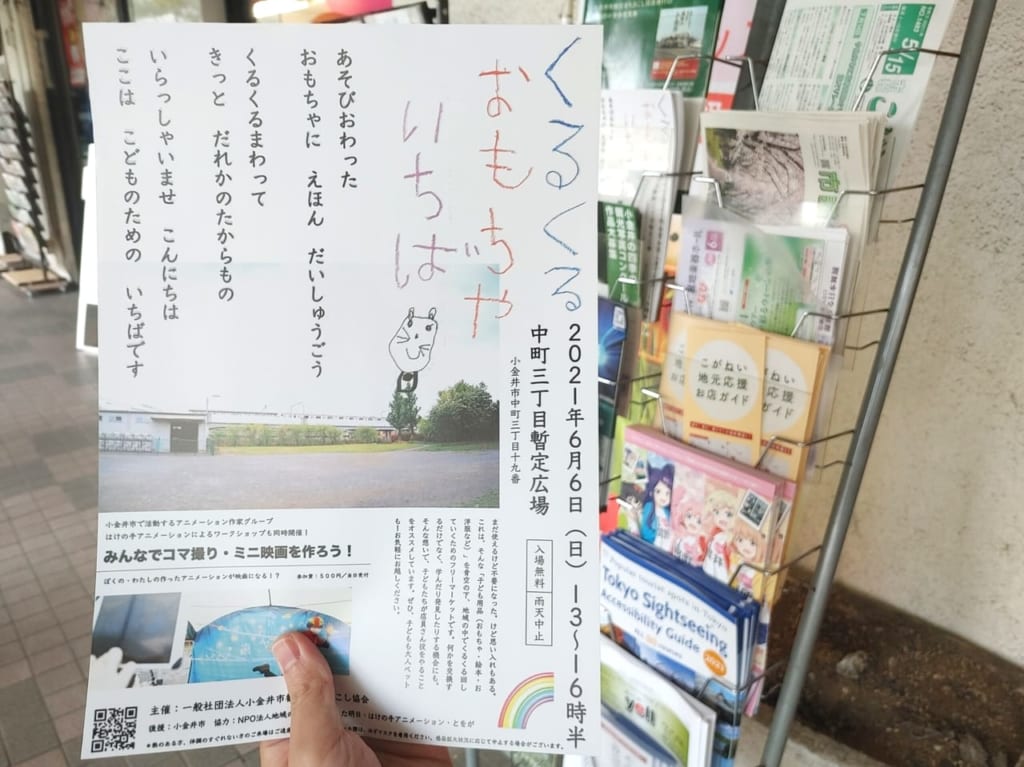 くるくる
おもちゃ
いちば
あそびおわった
おもちゃに えほん だいしゅうごう
くるくるまわって
きっと だれかのたからもの
いらっしゃいませ こんにちは
ここは こどものための いちばです
2021年6月6日(日)13〜16時半
中町三丁目暫定広場
小金井市中町三丁目十九番
入場無料
雨天中止
まだ使えるけど不要になった。けど思い入れもある。
これは、そんな「子ども用品(おもちゃ・絵本・お
洋服など)」を青空の下、地域の中でくるくる回し
ていくためのフリーマーケットです。何かを交換す
るだけでなく、学んだり発見したりする機会にも。
そんな想いで、子どもたちが店員さん役をやること
をオススメしています。ぜひ、子どもも大人もペット
も!お気軽にお越しください。
小金井市で活動するアニメーション作家グループ
はけの手アニメーションによるワークショップも同時開催!
みんなでコマ撮り・ミニ映画を作ろう!
ぼくの・わたしの作ったアニメーションが映画になる!?
参加費:500円/当日受付
主催:一般社団法人小金井市
こし協会
後援:小金井市 協力:NPO法人地域の
た明日・はけの手アニメーション・とをが
感染拡大状況に応じて中止する場合がございます。
小金井の四季
観光写真コン
作品大募集
5/15
市
こがねい
地元応援
お店ガイド
ねい
応援
ガイド
Popular tourist spots in Tokyo
Tokyo Sightseeing
Accessibility Guide
2021
yell